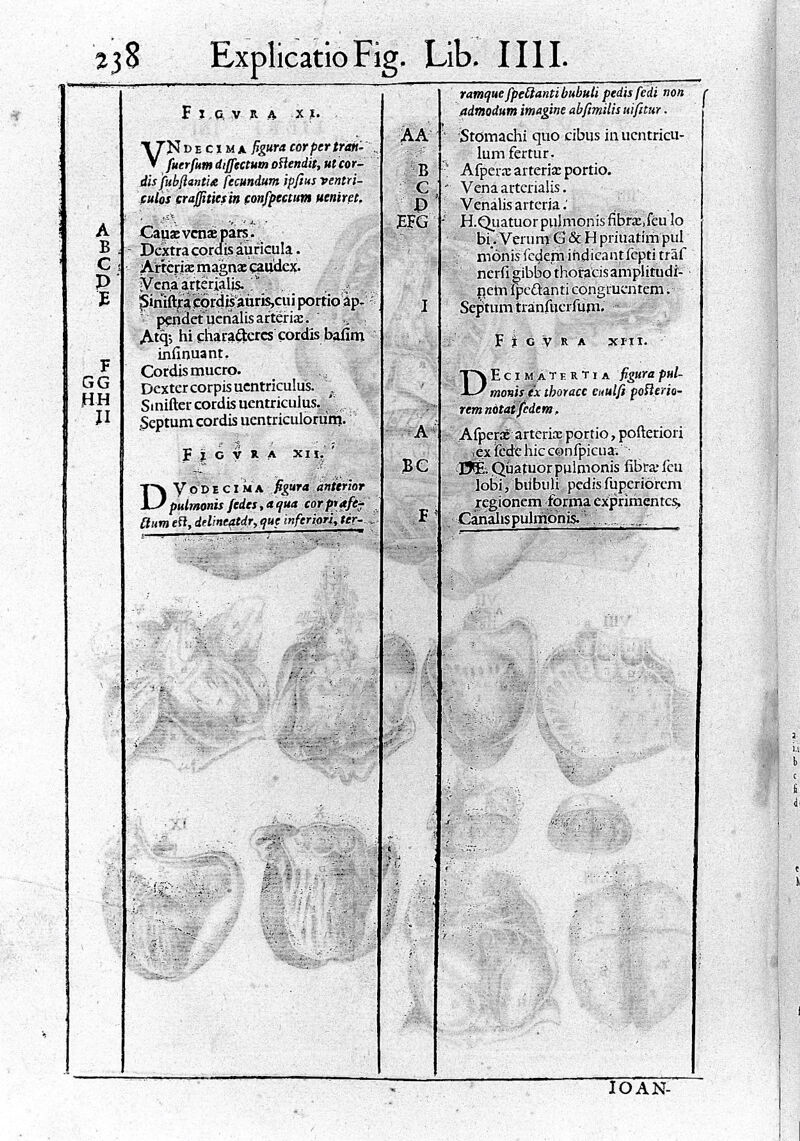 238 Explicatio Fig. Lib. IIII.
FIGVRA XI.
VNDECIMA figura cor per tran-
ſuerſum diſſectum oſtendit, ut cor-
dis ſubſtantiæ ſecundum ipſius ventri-
culos craſſities in conſpectum ueniret.
A Cauæ venæ pars.
B Dextra cordis auricula.
C Arteriæ magnæ caudex.
D Vena arterialis.
E Siniſtra cordis auris, cui portio ap-
pendet uenalis arteriæ.
Atq; hi characteres cordis baſim
inſinuant.
F Cordis mucro.
GG Dexter corpis uentriculus.
HH Siniſter cordis uentriculus.
II Septum cordis uentriculorum.
FIGVRA XII.
DVODECIMA figura anterior
pulmonis ſedes, a qua cor præfe-
ctum eſt, delineatdr, que inferiori, ter-
ramque ſpectanti bubuli pedis ſedi non
admodum imagine abſimilis uiſitur.
AA Stomachi quo cibus in uentricu-
lum fertur.
B Aſperæ arteriæ portio.
C Vena arterialis.
D Venalis arteria.
EFG H. Quatuor pulmonis fibræ, ſeu lo
bi. Verum G & H priuatim pul
monis ſedem indicant ſepti trãſ
nerſi gibbo thoracis amplitudi-
nem ſpectanti congruentem.
I Septum tranſuerſum.
FIGVRA XIII.
DECIMATERTIA figura pul-
monis ex thorace euulſi poſterio-
rem notat ſedem.
A Aſperæ arteriæ portio, poſteriori
ex ſede hic conſpicua.
BC DE. Quatuor pulmonis fibræ ſeu
lobi, bubuli pedis ſuperiorem
regionem forma exprimentes,
F Canalis pulmonis.
IOAN-